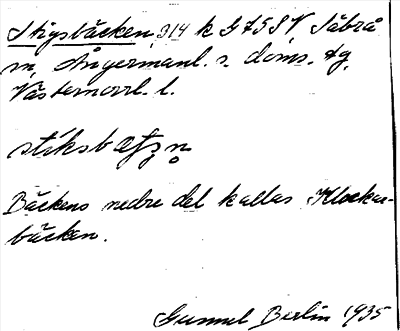 Stigsbäcken, 214 k G75SV, Säbrå
sn, Ångermanl. s. doms. tg,
Västernorrl. l.
stiksbætzn̥
Bäckens nedre del kallas Klockar-
bäcken.
Gunnel Berlin 1935